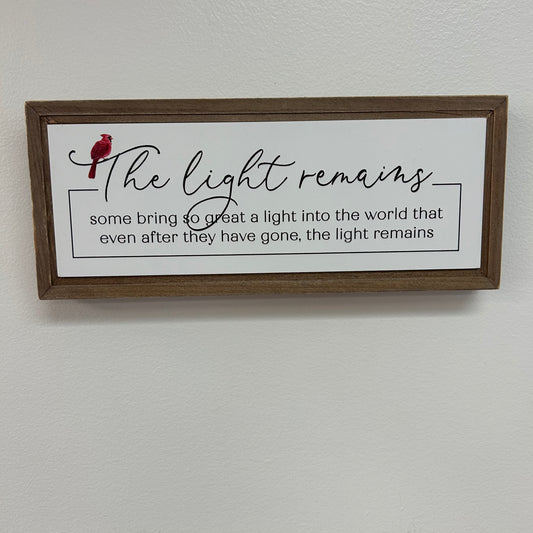 The light remains
some bring so great a light into the world that
even after they have gone, the light remains